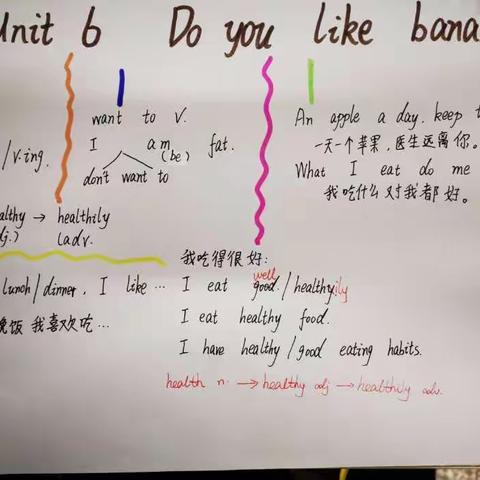 Unit 6 Do you like bana
want to v.
I am fat.
(be)
don't want to
/v.ing.
An apple a day. keep t
一天一个苹果,医生远离你。
What I eat do me
我吃什么对我都好。
althy → healthily
dj.) (adv.
lunch/dinner, I like ...
晚饭 我喜欢吃...
我吃得很好:
well
I eat good./healthyily
I eat healthy food.
I have healthy/good eating habits.
health n. → healthy adj → healthily adv.